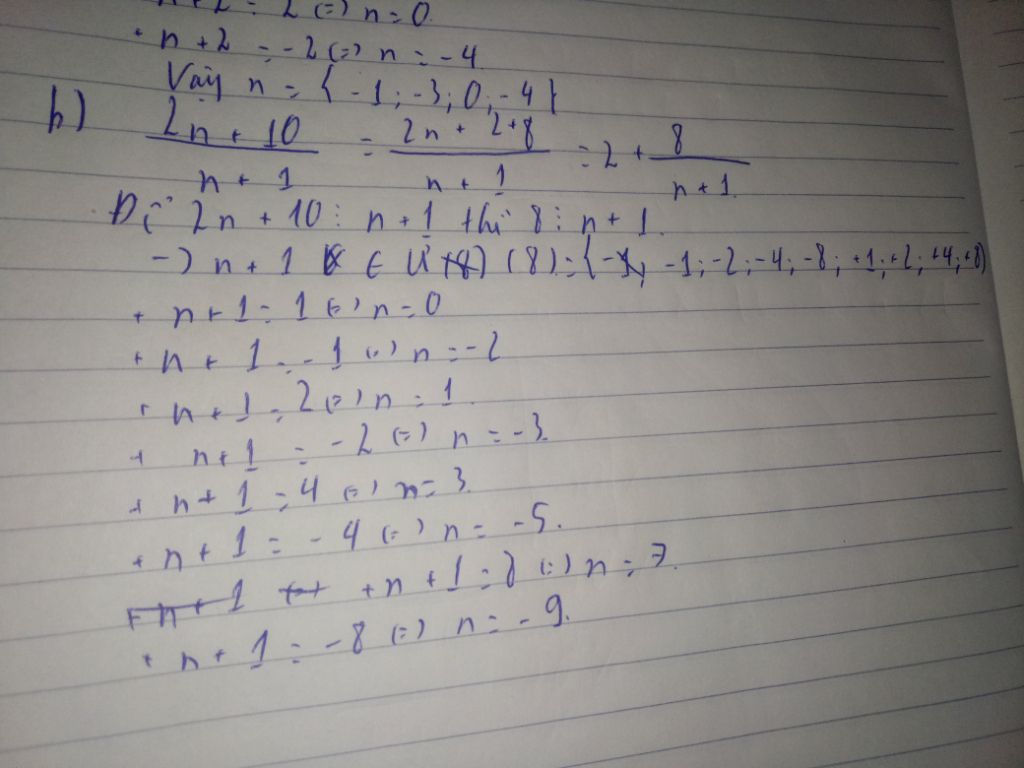 n+2 = 2 (=) n = 0.
+ n + 2 = -2 (=) n = -4
Vậy n = { -1; -3; 0; -4 }
b) (2n + 10)/(n + 1) = (2n + 2+8)/(n + 1) = 2 + 8/(n + 1)
Để 2n + 10 ⋮ n + 1 thì 8 ⋮ n + 1.
-) n + 1 ∈ Ư (8) = { -1; -2; -4; -8; +1; +2; +4; +8}
+ n + 1 = 1 (=) n = 0
+ n + 1 = -1 (=) n = -2
+ n + 1 = 2 (=) n = 1.
+ n + 1 = -2 (=) n = -3.
+ n + 1 = 4 (=) n = 3.
+ n + 1 = -4 (=) n = -5.
+ n + 1 = 8 (=) n = 7.
+ n + 1 = -8 (=) n = -9.